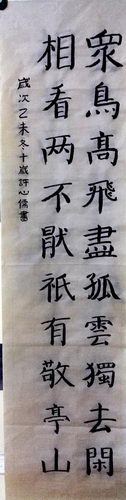 眾鳥高飛盡孤雲獨去閑
相看两不猒衹有敬亭山
歲次乙未冬十歲許心儒書